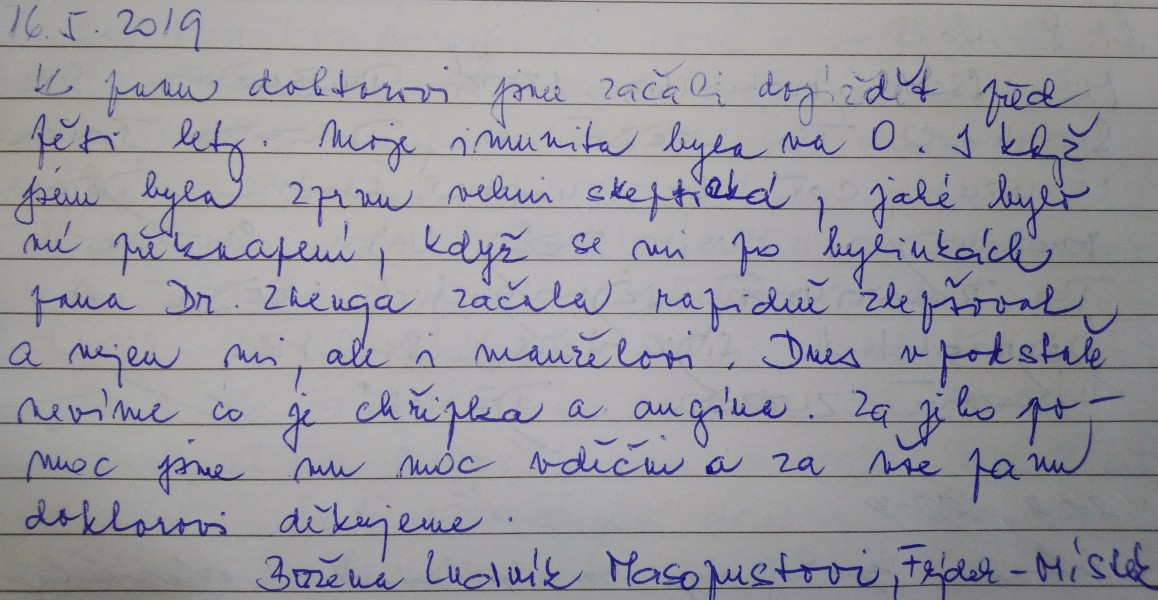 16.5.2019
K panu doktorovi jsme začali dojíždět před
pěti lety. Moje imunita byla na 0. I když
jsem byla zprvu velmi skeptická, jaké bylo
mé překvapení, když se mi po bylinkách
pana Dr. Zhenga začala rapidně zlepšovat,
a nejen mi, ale i manželovi. Dnes v podstatě
nevíme co je chřipka a angína. Za jeho po-
moc jsme mu moc vděční a za vše panu
doktorovi děkujeme.
Božena Ludvík Masopustovi, Frýdek-Místek